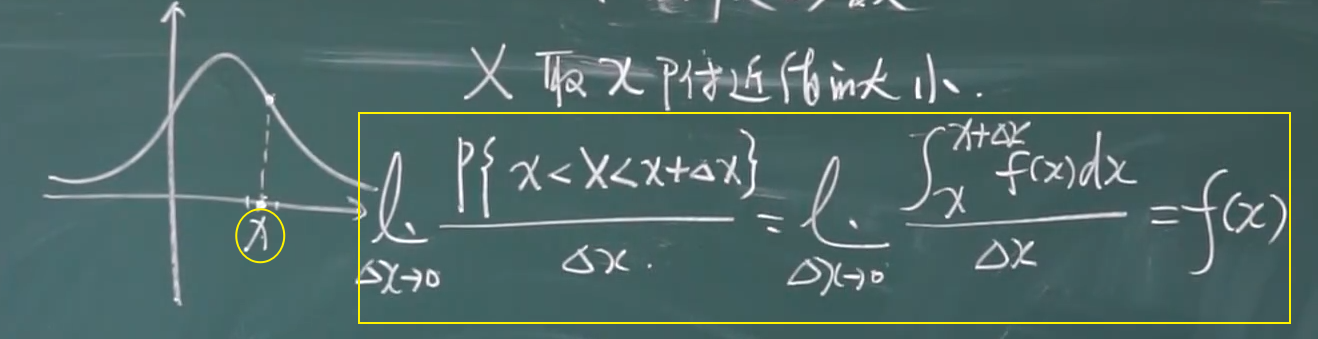 X 取 x 附近值的大小.
l. Δx→0 P{x<X<x+Δx} / Δx. = l. Δx→0 ∫_x^{x+Δx} f(x)dx / Δx = f(x)
x